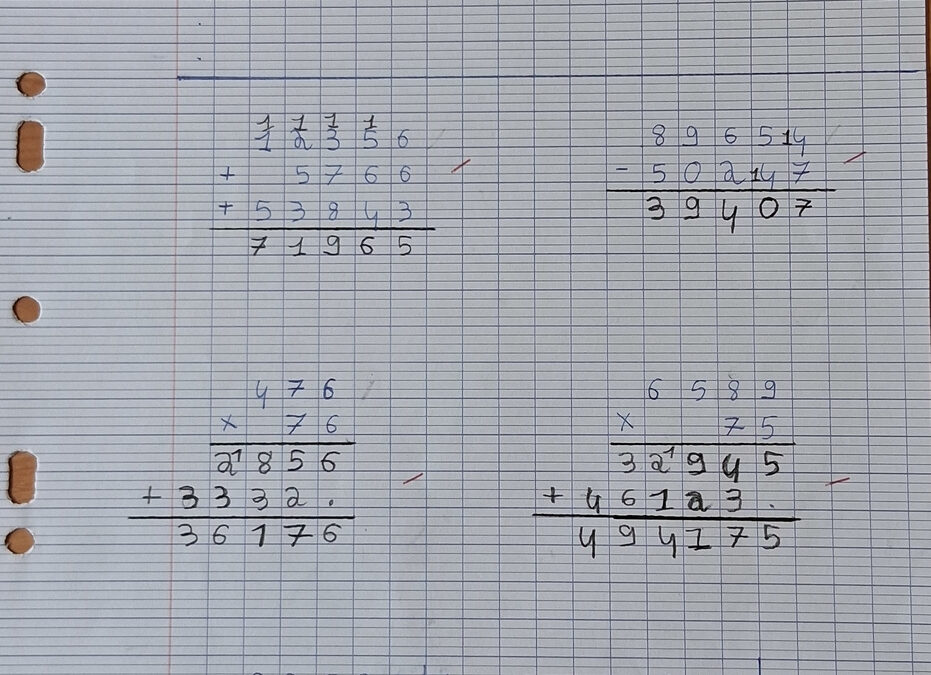 1 1 1 1
1 2 3 5 6
+ 5 7 6 6
+ 5 3 8 4 3
7 1 9 6 5
8 9 6 5 14
- 5 0 2 14 7
3 9 4 0 7
4 7 6
x 7 6
2 1 8 5 6
+ 3 3 3 2 .
3 6 1 7 6
6 5 8 9
x 7 5
3 2 1 9 4 5
+ 4 6 1 2 3 .
4 9 4 1 7 5